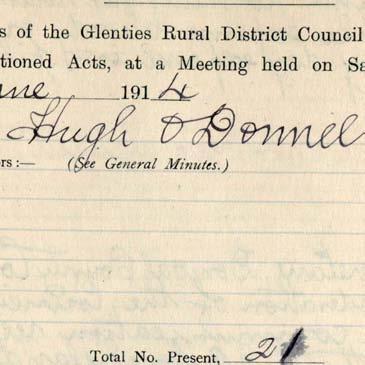 s of the Glenties Rural District Council
tioned Acts, at a Meeting held on Sa
une 1914
Hugh O'Donnel
ors :— (See General Minutes.)
Total No. Present, 21